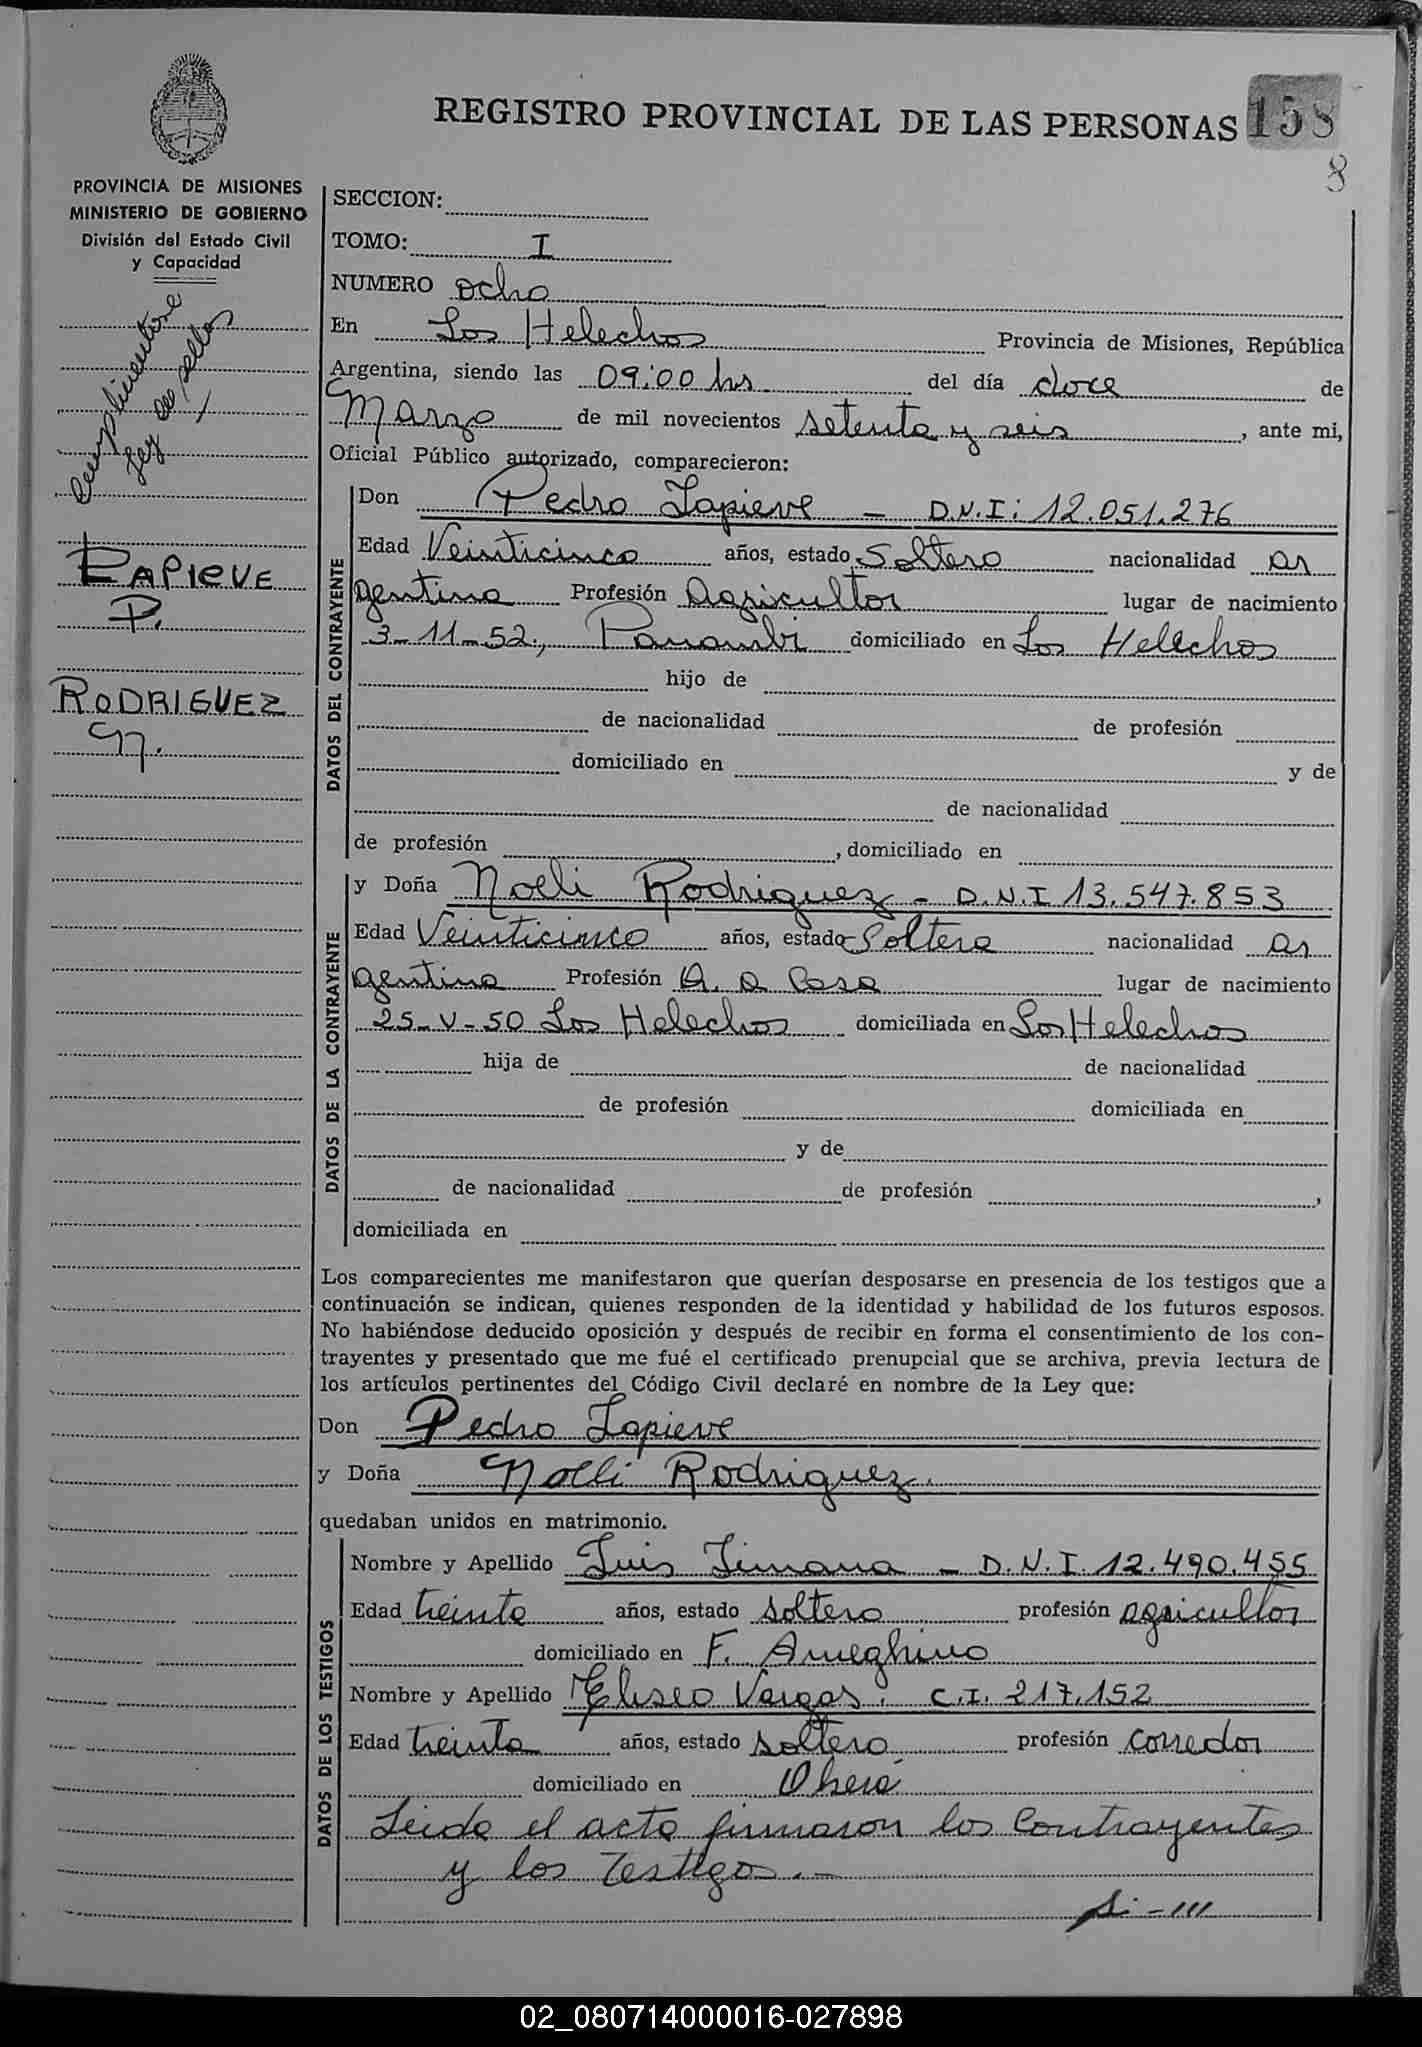 REGISTRO PROVINCIAL DE LAS PERSONAS 158
8
PROVINCIA DE MISIONES
MINISTERIO DE GOBIERNO
División del Estado Civil
y Capacidad
Cumplimentose
Ley de sellos
LAPIEVE
P.
RODRIGUEZ
N.
SECCION:
TOMO: I
NUMERO ocho
En Los Helechos Provincia de Misiones, República
Argentina, siendo las 09:00 hs del día doce de
Marzo de mil novecientos setenta y seis, ante mi,
Oficial Público autorizado, comparecieron:
DATOS DEL CONTRAYENTE
Don Pedro Lapieve - D.N.I: 12.051.276
Edad Veinticinco años, estado Soltero nacionalidad ar
gentina Profesión Agricultor lugar de nacimiento
3-11-52, Panambi domiciliado en Los Helechos
hijo de
de nacionalidad de profesión
domiciliado en y de
de nacionalidad
de profesión , domiciliado en
DATOS DE LA CONTRAYENTE
y Doña Noeli Rodriguez - D.N.I 13.547.853
Edad Veinticinco años, estado Soltera nacionalidad ar
gentina Profesión A. a Casa lugar de nacimiento
25-V-50 Los Helechos domiciliada en Los Helechos
hija de de nacionalidad
de profesión domiciliada en
y de
de nacionalidad de profesión ,
domiciliada en
Los comparecientes me manifestaron que querían desposarse en presencia de los testigos que a
continuación se indican, quienes responden de la identidad y habilidad de los futuros esposos.
No habiéndose deducido oposición y después de recibir en forma el consentimiento de los con-
trayentes y presentado que me fué el certificado prenupcial que se archiva, previa lectura de
los artículos pertinentes del Código Civil declaré en nombre de la Ley que:
Don Pedro Lapieve
y Doña Noeli Rodriguez.
quedaban unidos en matrimonio.
DATOS DE LOS TESTIGOS
Nombre y Apellido Luis Limana - D.N.I. 12.490.455
Edad treinta años, estado soltero profesión agricultor
domiciliado en F. Ameghino
Nombre y Apellido Eliseo Vargas. C.I. 217.152
Edad treinta años, estado soltero profesión corredor
domiciliado en Oberá
Leida el acta firmaron los Contrayentes
y los Testigos.-
02_080714000016-027898